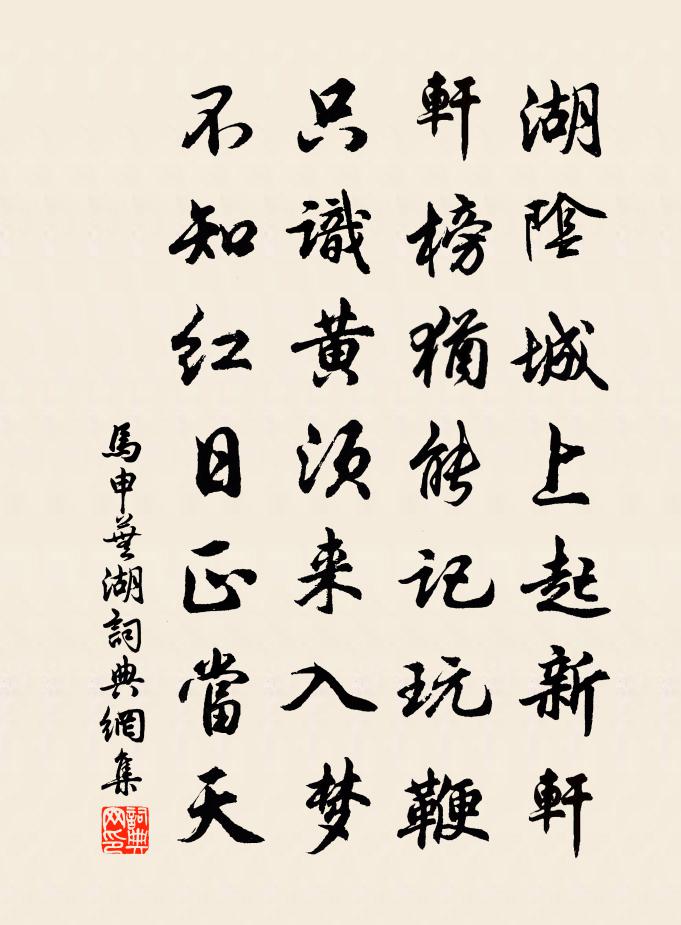 湖陰城上起新軒
軒榜猶能記玩鞭
只識黃須来入梦
不知红日正當天
馬申蕪湖詞典網集
詞典网印